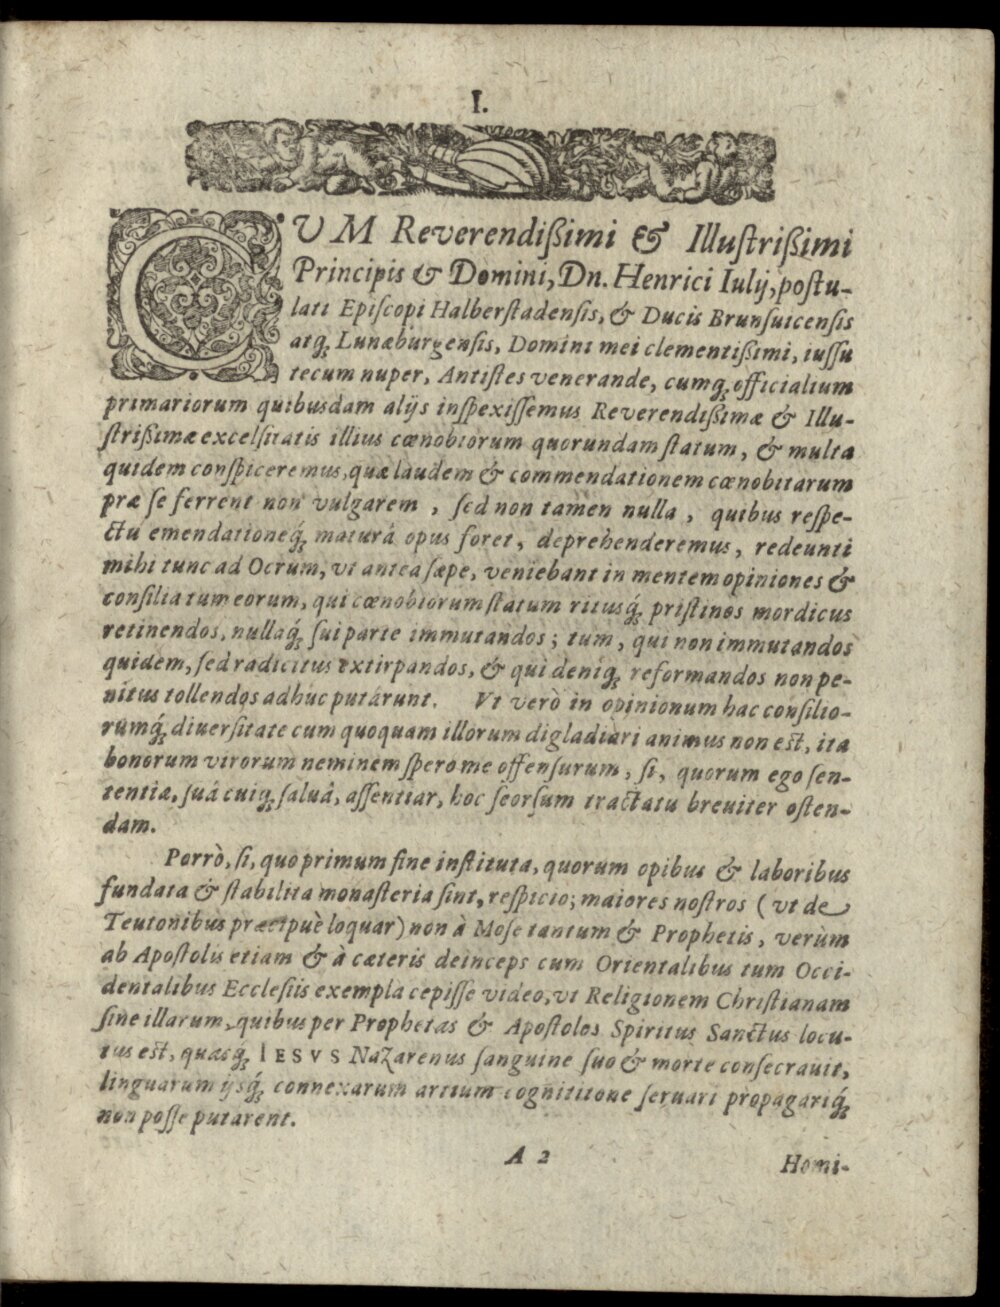 I.
CVM Reverendißimi & Illuſtrißimi
Principis & Domini, Dn. Henrici Iulij, poſtu-
lati Epiſcopi Halberſtadenſis, & Ducis Brunſuicenſis
atq́; Lunæburgenſis, Domini mei clementißimi, iuſſu
tecum nuper, Antiſtes venerande, cumq́; officialium
primariorum quibusdam alijs inſpexiſſemus Reverendißimæ & Illu-
ſtrißimæ excelſitatis illius cœnobiorum quorundam ſtatum, & multa
quidem conſpiceremus, quæ laudem & commendationem cœnobitarum
præ ſe ferrent non vulgarem, ſed non tamen nulla, quibus reſpe-
ctu emendationeq́; maturâ opus foret, deprehenderemus, redeunti
mihi tunc ad Ocrum, vt antea ſæpe, veniebant in mentem opiniones &
conſilia tum eorum, qui cœnobiorum ſtatum ritusq́; priſtinos mordicus
retinendos, nullaq́; ſui parte immutandos; tum, qui non immutandos
quidem, ſed radicitus extirpandos, & qui deniq; reformandos non pe-
nitus tollendos adhuc putârunt. Vt verò in opinionum hac conſilio-
rumq́; diuerſitate cum quoquam illorum digladiari animus non est, ita
bonorum virorum neminem ſpero me offenſurum, ſi, quorum ego ſen-
tentiæ, ſuâ cuiq; ſaluâ, aſſentiar, hoc ſeorſum tractatu breuiter oſten-
dam.
Porrò, ſi, quo primum fine inſtituta, quorum opibus & laboribus
fundata & ſtabilita monaſteria ſint, reſpicio; maiores noſtros (vt de
Teutonibus præcipuè loquar) non à Moſe tantum & Prophetis, verùm
ab Apoſtolis etiam & à cæteris deinceps cum Orientalibus tum Occi-
dentalibus Eccleſiis exempla cepiſſe video, vt Religionem Chriſtianam
ſine illarum, quibus per Prophetas & Apoſtolos Spiritus Sanctus locu-
tus est, quasq́; IESVS Nazarenus ſanguine ſuo & morte conſecrauit,
linguarum ijsq́; connexarum artium cognititone ſeruari propagariq́;
non poſſe putarent.
A 2
Homi-